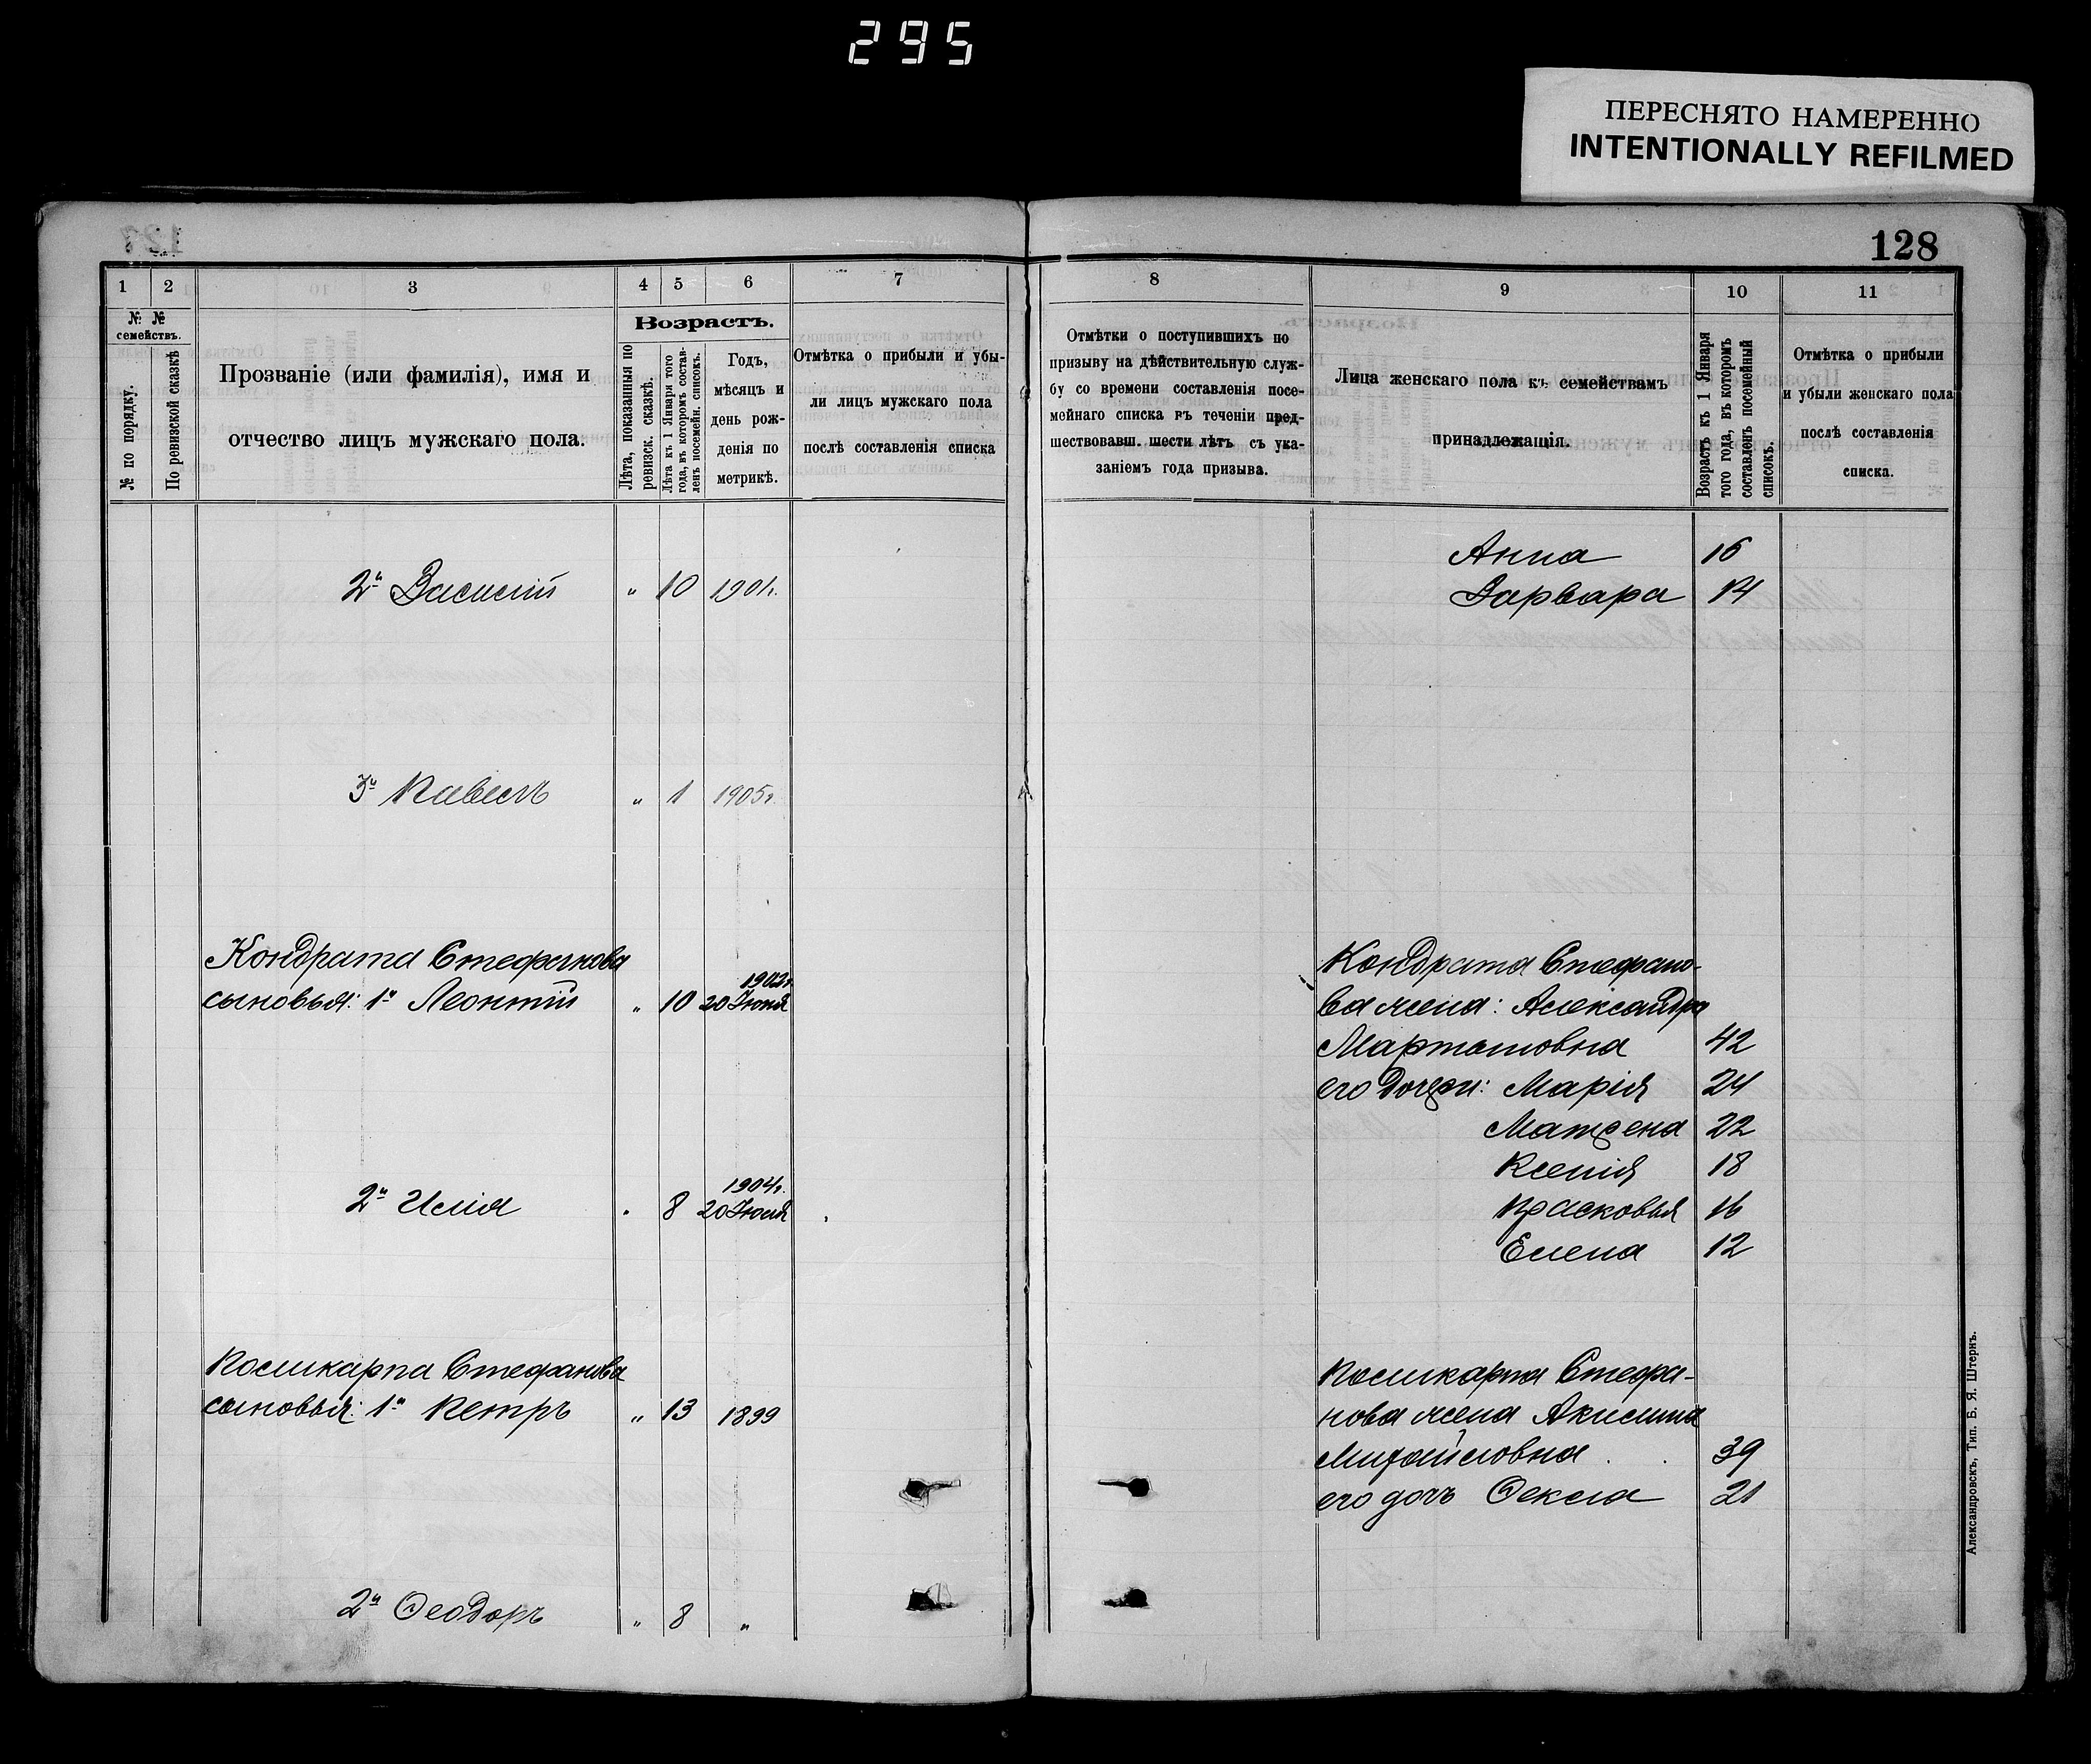 295
ПЕРЕСНЯТО НАМЕРЕННО
INTENTIONALLY REFILMED
128
1 2 3 4 5 6 7
№ № семействъ.
№ по порядку.
По ревизской сказкѣ
Прозваніе (или фамилія), имя и
отчество лицъ мужскаго пола.
Возрастъ.
Лѣта, показанныя по
ревизск. сказкѣ.
Лѣта къ 1 Января того
года, въ которомъ состав-
ленъ посемейн. списокъ.
Годъ,
мѣсяцъ и
день рож-
денія по
метрикѣ.
Отмѣтка о прибыли и убы-
ли лицъ мужскаго пола
послѣ составленія списка
2й Василій " 10 1901г.
3й Павелъ " 1 1905г.
Кондрата Стефанова
1902г.
сыновья: 1й Леонтій " 10 20 Іюня
1904г.
2й Илія " 8 20 Іюля
Поликарпа Стефанова
сыновья: 1й Петръ " 13 1899
2й Ѳеодоръ " 8 "
8 9 10 11
Отмѣтки о поступившихъ по
призыву на дѣйствительную служ-
бу со времени составленія посе-
мейнаго списка въ теченіи пред-
шествовавш. шести лѣтъ съ ука-
заніемъ года призыва.
Лица женскаго пола къ семействамъ
принадлежащія.
Возрастъ къ 1 Января
того года, въ которомъ
составленъ посемейный
списокъ.
Отмѣтка о прибыли
и убыли женскаго пола
послѣ составленія
списка.
Анна 16
Варвара 14
Кондрата Стефано-
ва жена: Александра
Мартыновна 42
его дочери: Марія 24
Матрена 22
Ксенія 18
Прасковья 16
Елена 12
Поликарпа Стефа-
нова жена Акилина
Михайловна 39
его дочь Ѳекла 21
Александровскъ, Тип. Б. Я. Штернъ.